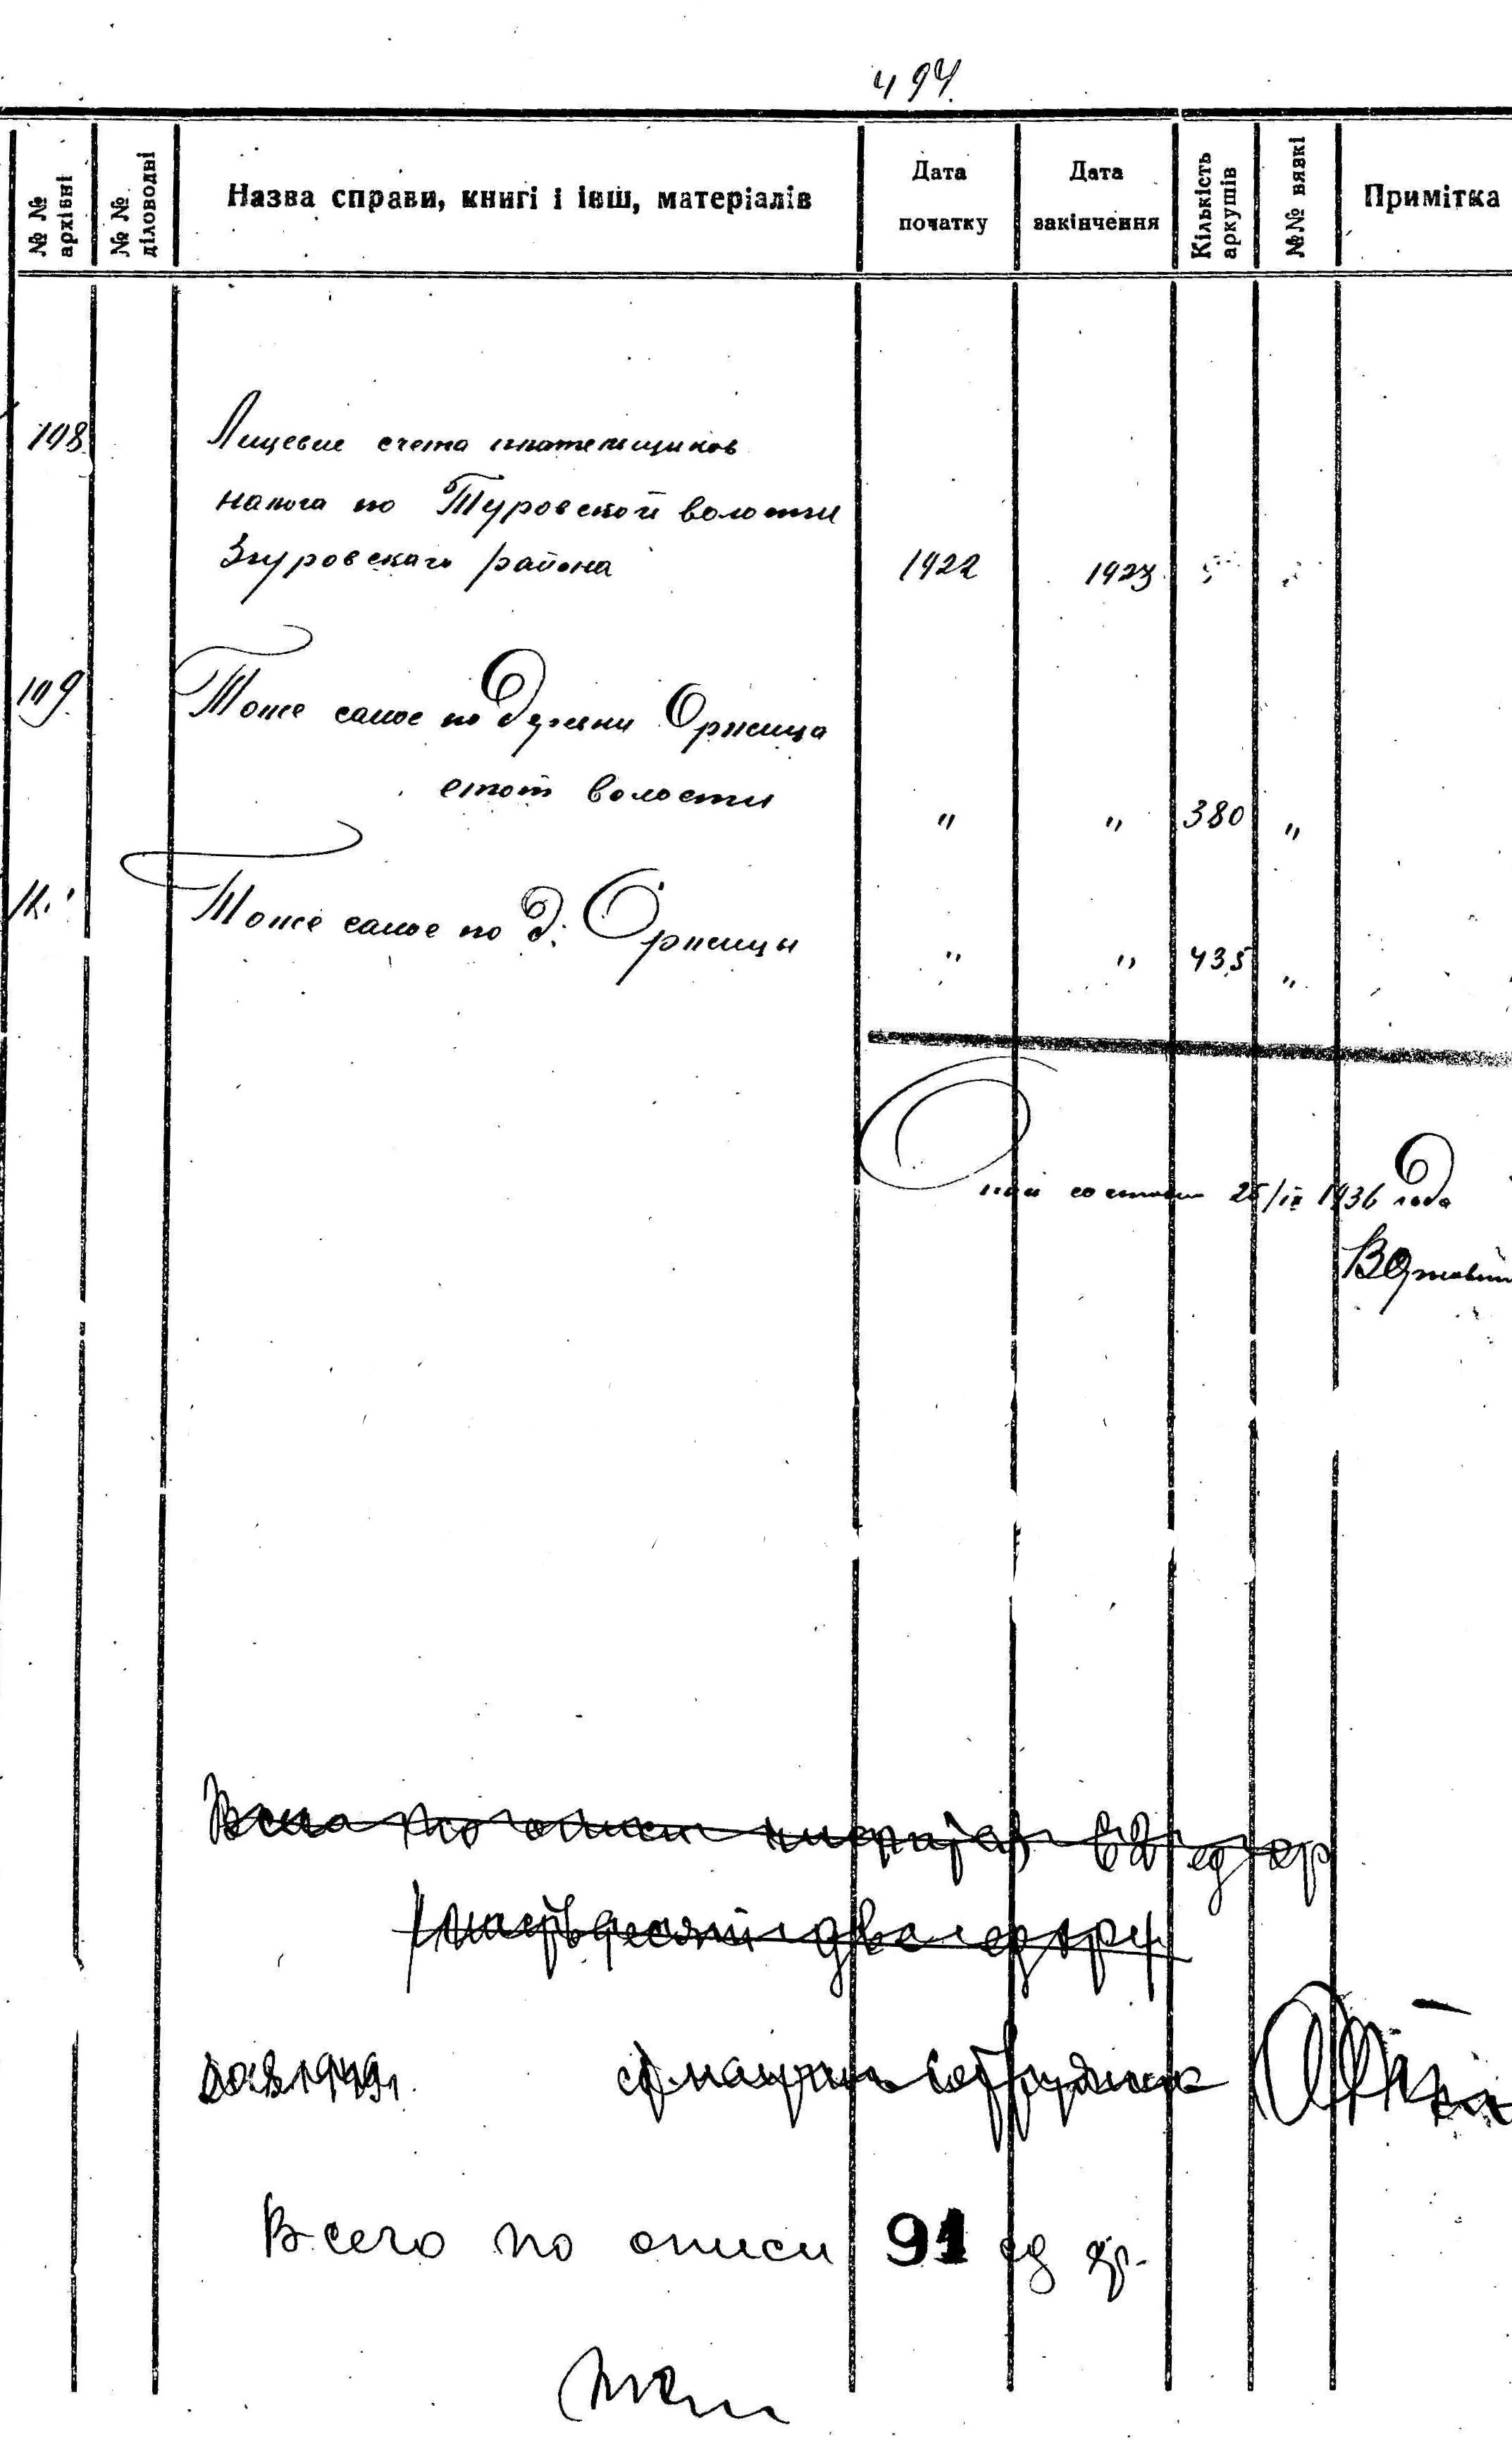 494.
№ № архівні
№ № діловодні
Назва справи, книгі і інш, матеріалів
Дата початку
Дата закінчення
Кількість аркушів
№№ вязкі
Примітка
198
Лицевие счета плательщиков
налога по Туровской волости
Згуровскаго района 1922 1923
199
Тоже самое по Оржица
етой волости " " 380 "
Тоже самое по д. Оржицы " " 435 "
состав 1936 года
Всего по описи 62 ед хр
два ед хр
1949
научн сотрудник
Всего по описи 91 ед хр.